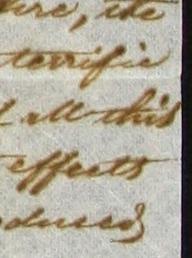 ire, the
terrific
all this
effects
oduced